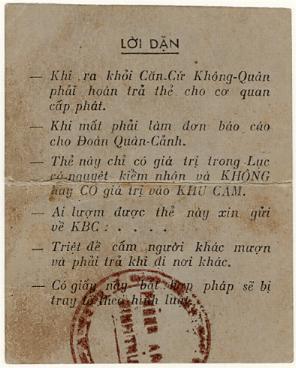 LỜI DẶN
— Khi ra khỏi Căn-Cứ Không-Quân
phải hoàn trả thẻ cho cơ quan
cấp phát.
— Khi mất phải làm đơn báo cáo
cho Đoàn Quân-Cảnh.
— Thẻ này chỉ có giá trị trong Lục
cá-nguyệt kiểm nhận và KHÔNG
hay CÓ giá trị vào KHU CẤM.
— Ai lượm được thẻ này xin gửi
về KBC : . . . .
— Triệt để cấm người khác mượn
và phải trả khi đi nơi khác.
— Có giấy này bất hợp pháp sẽ bị
truy tố theo hình luật.